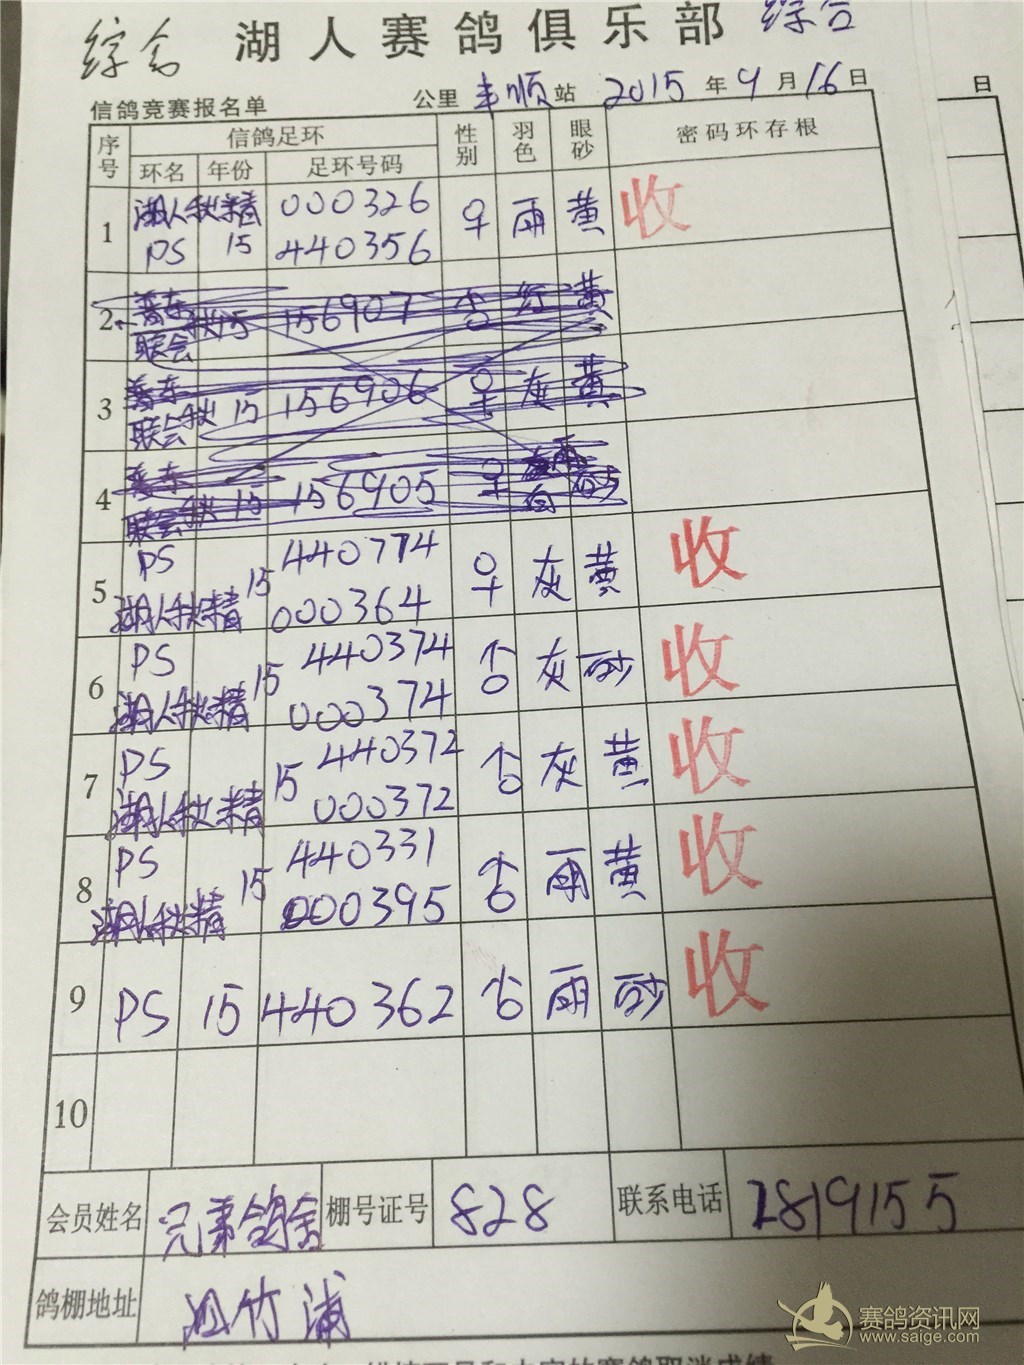 综合 湖人赛鸽俱乐部 综合
信鸽竞赛报名单 公里 丰顺 站 2015 年 9 月 16 日
日
序号 信鸽足环 性别 羽色 眼砂 密码环存根
环名 年份 足环号码
1 湖人秋精 000326 ♀ 雨 黄 收
PS 15 440356
2 15 156907 ♂ 红 黄
联会秋
3 15 156906 ♀ 灰 黄
联会秋
4 15 156905 ♀ 砂
联会秋
5 PS 15 440774 ♀ 灰 黄 收
湖人秋精 000364
6 PS 15 440374 ♂ 灰 砂 收
湖人秋精 000374
7 PS 15 440372 ♂ 灰 黄 收
湖人秋精 000372
8 PS 15 440331 ♂ 雨 黄 收
湖人秋精 000395
9 PS 15 440362 ♂ 雨 砂 收
10
会员姓名 兄弟鸽舍 棚号证号 828 联系电话 2819155
鸽棚地址 竹浦
赛鸽资讯网
www.saige.com